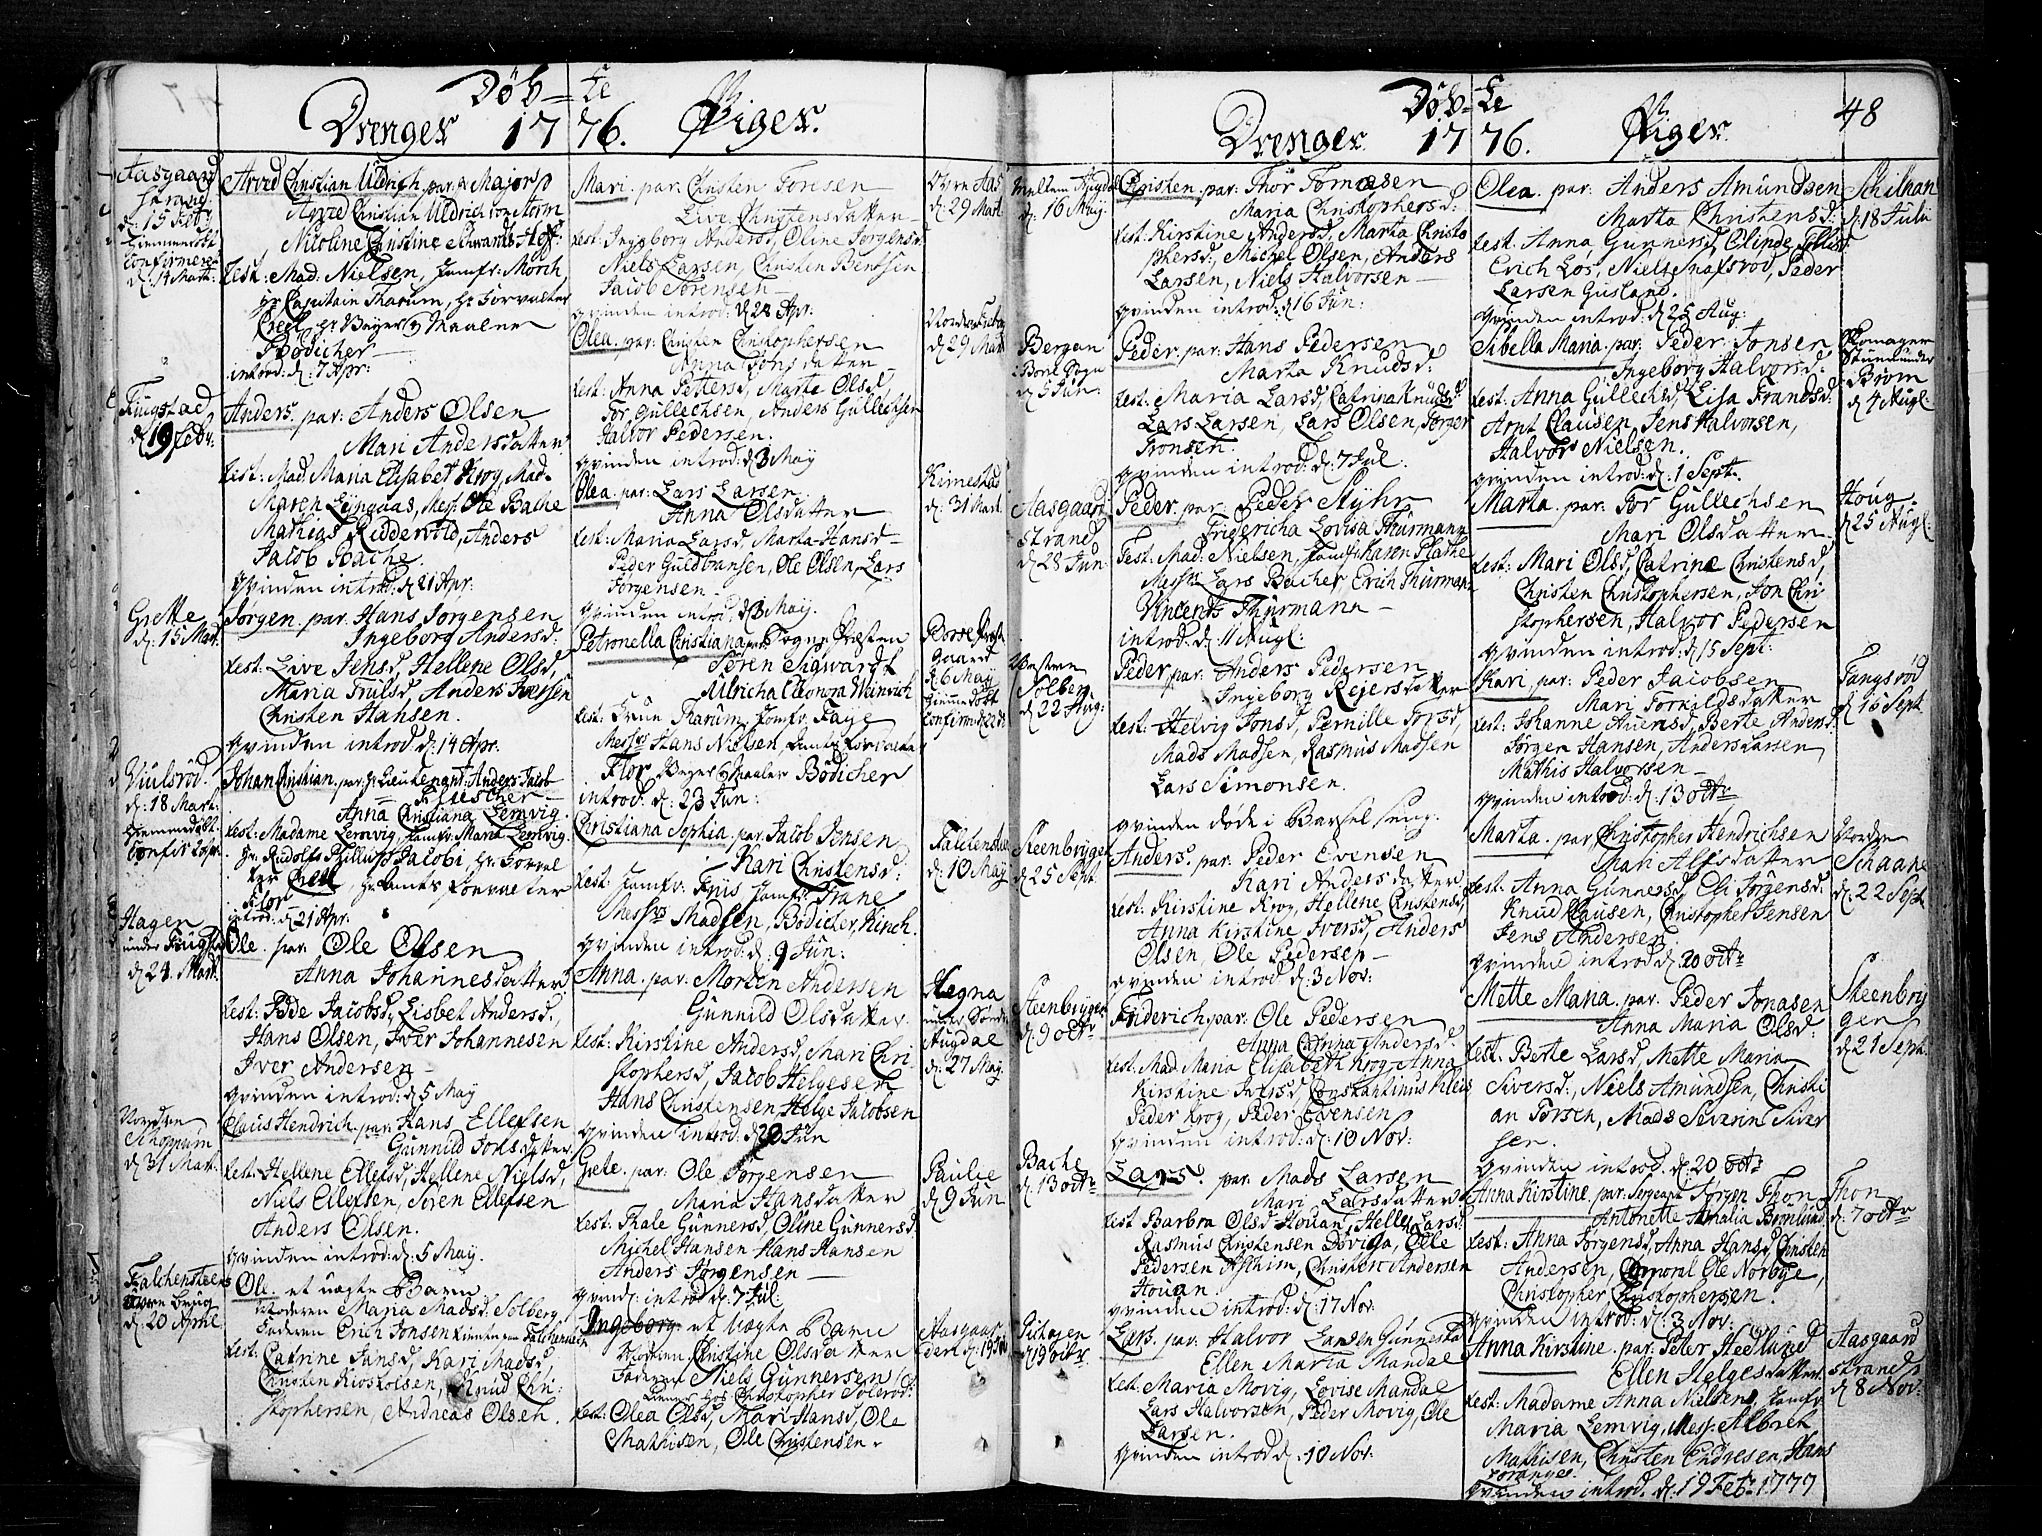 Döb-te
Drenger 1776. Piger.
Aasgaard
strand
d: 15 Febr
hjemmedöbt
Confirmeret
d: 14 Mart:
Arved Christian Uldrich, par: Major
Arved Christian Uldrich von Storm
Nicoline Christine
Test: Mad: Nielsen, Jomfr: Mörch,
Hr Capitain Tharum, Hr Forvalter
Creel, Hr Beyer
Bödicher
introd: d: 7 Apr:
Fuugstad
d: 19 Febr.
Anders. par: Anders Olsen
Mari Andersdatter
test: Mad: Maria Elisabet Krog, Mad.
Maren
Mathias Riddervold, Anders
Jacob Bache
qvinden introd: d: 21 Apr:
Grette
d: 15 Mart.
Jörgen. par: Hans Jörgensen
Ingeborg Andersd:
test: Live Jensd, Hellene Olsd,
Maria Trulsd, Anders Iversen
Christen Hansen.
qvinden introd: d: 14 Apr:
d: 18 Mart.
hjemmedöbt.
Confir
Johan Christian. par: Hr Lieutenant Anders Jacob
Anna Christiana Lemvig.
test: Madame Lemvig, Jomfr: Maria Lemvig.
Hr. Rudolf Phillip Jacobi, Hr. Forval
ter Creel, Hr Amts forvalter
Flor
introd: d: 21 Apr:
Hagen
under Fuugstad
d: 24 Mart.
Ole. par: Ole Olsen
Anna Johannesdatter
test: Pede Jacobsd, Lisbet Andersd:,
Hans Olsen, Iver Johannesen
Iver Andersen
qvinden introd: d: 5 May
Norden
Skoppum
d: 31 Mart.
Claus Hendrich. par: Hans Ellefsen
Gunnild Jonsdatter
test: Hellene Ellefsd, Hellene Nielsd,
Niels Ellefsen, Sören Ellefsen
Anders Olsen.
qvinden introd: d: 5 May.
Falchensteens
Övre brug
d: 20 Aprl
Ole. et uægte Barn
Moderen Maria Madsd: Solberg
Faderen Erich Jonsen
test: Catrine Jansd, Kari Madsd,
Christen, Knud Chri:
stophersen, Andreas Olsen.
Mari. par: Christen Toresen
Live Christensdatter
test: Ingeborg Andersd, Oline Jörgensd.
Niels Larsen, Christen Bentsen
Jacob Sörensen
qvinden introd: d 28 Apr:
Övre Aas
d: 29 Mart.
Olea. par: Christen Christophersen
Anna Johnsdatter
test: Anna Pettersd, Marte Olsd,
Tor Gullechsen, Anders Gullechsen
Halvor Pedersen.
qvinden introd: d: 3 May
d: 29 Mart
Olea. par: Lars Larsen
Anna Olsdatter
test: Maria Larsd, Marta Hansd
Peder Guldbransen, Ole Olsen, Lars
Jörgensen.
qvinden introd: d 3 May.
Kirnestad
d: 31 Mart.
Petronella Christiana par: Sogne Præsten
Sören Sigwardt
Ulricha Eleonora Weinrich
test: Frue Tharum, Jomfr: Faye
Messrs Hans Nielsen, Amtsforvalter
Flor, Beyer, Bödicher
introd: d: 23 Jun:
Borre Præste
gaard
d. 6 May
hjemmedöbt
Confirm:
Christiana Sophia. par: Jacob Jensen
Kari Christensd:
test: Jomfr: Friis Jomfr: Trane
Messrs Madsen, Bödicher, Hinch.
qvinden introd: d: 9 Jun:
Falchensteen
d: 10 May
Anna. par: Morten Andersen
Gunnild Olsdatter.
test: Kirstine Andersd, Mari Chri-
stophersd, Jacob Helgesen
Hans Christensen, Helge Jacobsen
qvinden introd: d 20 Jun
Hegna
under Söndre
Augdal
d: 27 May.
Grete. par: Ole Jörgensen
Maria Hansdatter
test: Thale Gunnersd, Oline Gunnersd
Michel Hansen Hans Hansen
Anders Jörgensen
qvind: introd d: 7 Jul:
Paulie
d 9 Jun
Ingeborg. et Uægte Barn
Moderen Christine Olsdatter
Faderen Niels Gunnersen
tienner hos Christopher Solerod:
test: Olea Olsd, Mari Hansd, Ole
Mathisen, Ole Christensen.
Aasgaar
Döb-te
Drenger 1776. Piger. 48
Mellem Augdal
d: 16 Maij.
Christen. par: Thor Tomæsen
Maria Christophersd:
test: Kirstine Andersd, Marta Christo
phersd, Michel Olsen, Anders
Larsen, Niels Halvorsen
qvinden introd: d: 16 Jun:
Bergan
i Borre Sogn
d 5 Jun:
Peder. par: Hans Pedersen
Marta Knudsd:
test: Maria Larsd, Catrina Knudsd
Lars Larsen, Lars Olsen, Jörger
Tronsen.
qvinden introd: d: 7 Jul.
Aasgaard
strand
d: 28 Jun
Peder. par: Peder Stÿhr
Friderica Lovisa Thurmann
Test: Mad: Nielsen, Jomfr Karen Plathe
Messrs Lars Bacher Erich Thurmann
Vincents Thurmann
introd: d: 11 Augl:
Vestren
Solberg
d: 22 Aug:
Peder. par: Anders Pedersen
Ingeborg Rejersdatter
test: Helvig Jonsd, Pernille Torsd,
Mads Madsen, Rasmus Madsen
Lars Simonsen.
qvinden döde i Barsel seng.
Steenbrygen
d: 25 Sept.
Anders. par: Peder Evensen
Kari Andersdatter
test: Kirstine Krog, Hellene Christensd,
Anna Kirstine Iversd, Anders
Olsen, Ole Pedersen
qvinden introd d: 3 Nov:
Steenbrygen
d: 9 Octr
Friderich. par: Ole Pedersen
Anna Catrina Andersd:
test: Mad Maria Elisabeth Krog, Anna
Kirstine, Constantinus Kleis
Peder Krog, Peder Evensen
qvinden introd: d: 10 Nov:
Bache
d. 13 Octr
Lars. par: Mads Larsen
Mari Larsdatter
test Barbra Olsd Houan, Helle Larsd:
Rasmus Christensen, Olle
Pedersen, Christen Andersen
Houan.
qvinden introd: d: 17 Nov.
d 19 Octr.
Lars. par: Halvor Larsen Gunnestad
Ellen Maria Mandal
test: Maria Movig, Lovise Mandal
Lars Halvorsen, Peder Movig, Ole
Larsen.
qvinden introd d: 10 Nov:
Olea. par: Anders Amundsen
Marta Christensd:
test: Anna Gunnersd, Olinde
Erich Lös, Niels, Peder
Larsen Gusland.
qvinden introd: d 25 Aug:
d: 18 Juli
Sibella Maria. par: Peder Jonsen
Ingeborg Halvorsd:
test: Anna Gullechsd, Lisa Frandsd.
Arnt Clausen, Jens Halvorsen,
Halvor Nielsen.
qvinden introd: d: 1 Sept.
d 4 Augl
Marta. par: Tor Gullechsen
Mari Olsdatter
test: Mari Olsd, Catrine Christensd,
Christen Christophersen, Jon Chri
stophersen, Halvor Pedersen
qvinden introd: d 15 Sept:
Houg
d 25 Augl:
Kari. par: Peder Jacobsen
Mari Torkildsdatter
test: Johanne, Berte Andersd.
Jörgen Hansen, Anders Larsen
Mathis Halvorsen
qvinden introd: d: 13 Octr
Fangsröd
d 15 Sept
Marta. par: Christopher Hendrichsen
Mari Alfsdatter
test: Anna Gunnersd, Eli Jörgensd:
Knud Clausen, Christopher Jensen
Jens Andersen
qvinden introd d: 20 Octr
Nordre
Skaane
d: 22 Sept
Mette Maria. par: Peder Jonasen
Anna Maria Olsd:
test: Berte Larsd, Mette Maria
Siversd:, Niels Amundsen, Christi
an Torsen, Mads Severin Siver
sen.
qvinden introd d: 20 Octr
Steenbry
gen
d: 21 Sept.
Anna Kirstine. par: Sergeant Jörgen Thon
Antonette Amalia
test: Anna Jörgensd, Anna Hansd, Christen
Andersen, Ole Norbye,
Christopher Christophersen.
qvinden introd: d: 3 Nov:
Thon
d: 7 Octr
Anna Kirstine. par: Peter Hedlund
Ellen Helgesdatter
test: Madame Anna Nielsen, Jomfr
Maria Lemvig, Mesr: Albret
Mathisen, Christen Endresen, Hans
qvinden introd. d: 19 Feb: 1777
Aasgaard
strand
d 8 Nov: